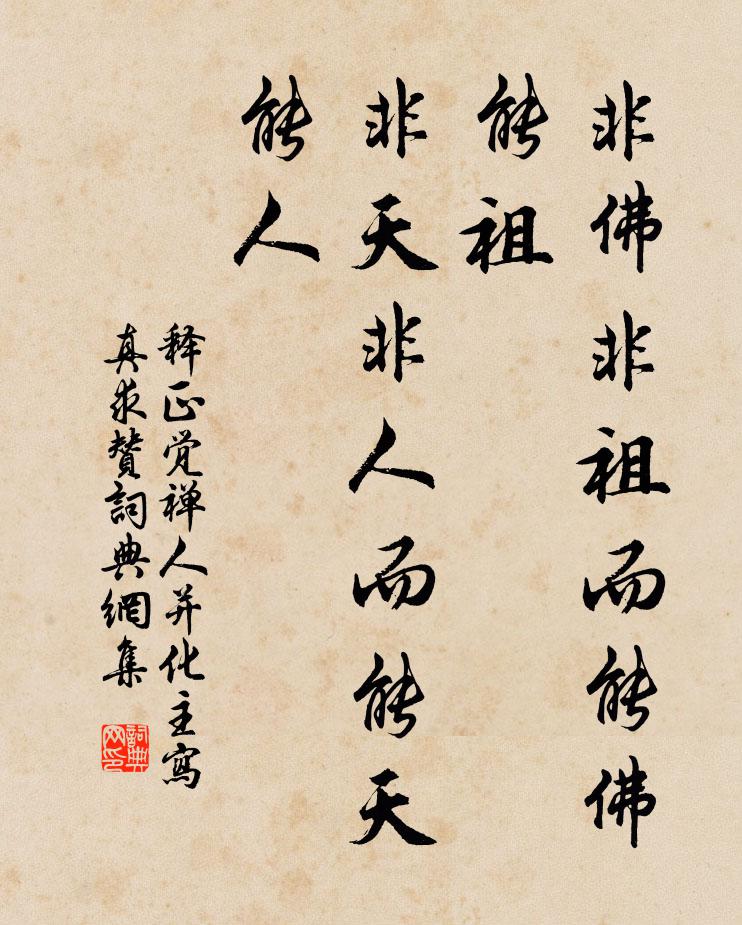 非佛非祖而能佛
能祖
非天非人而能天
能人
释正觉禅人并化主寫
真求贊詞典網集
詞典
网印